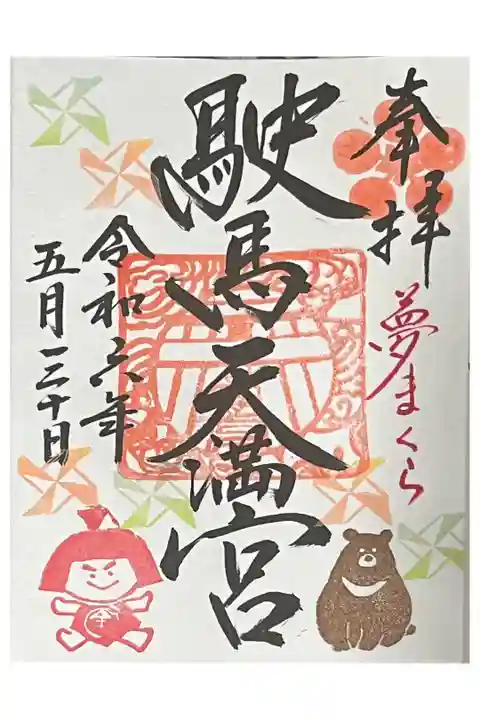 奉拝
夢まくら
駛馬天満宮
令和六年
五月三十日
金